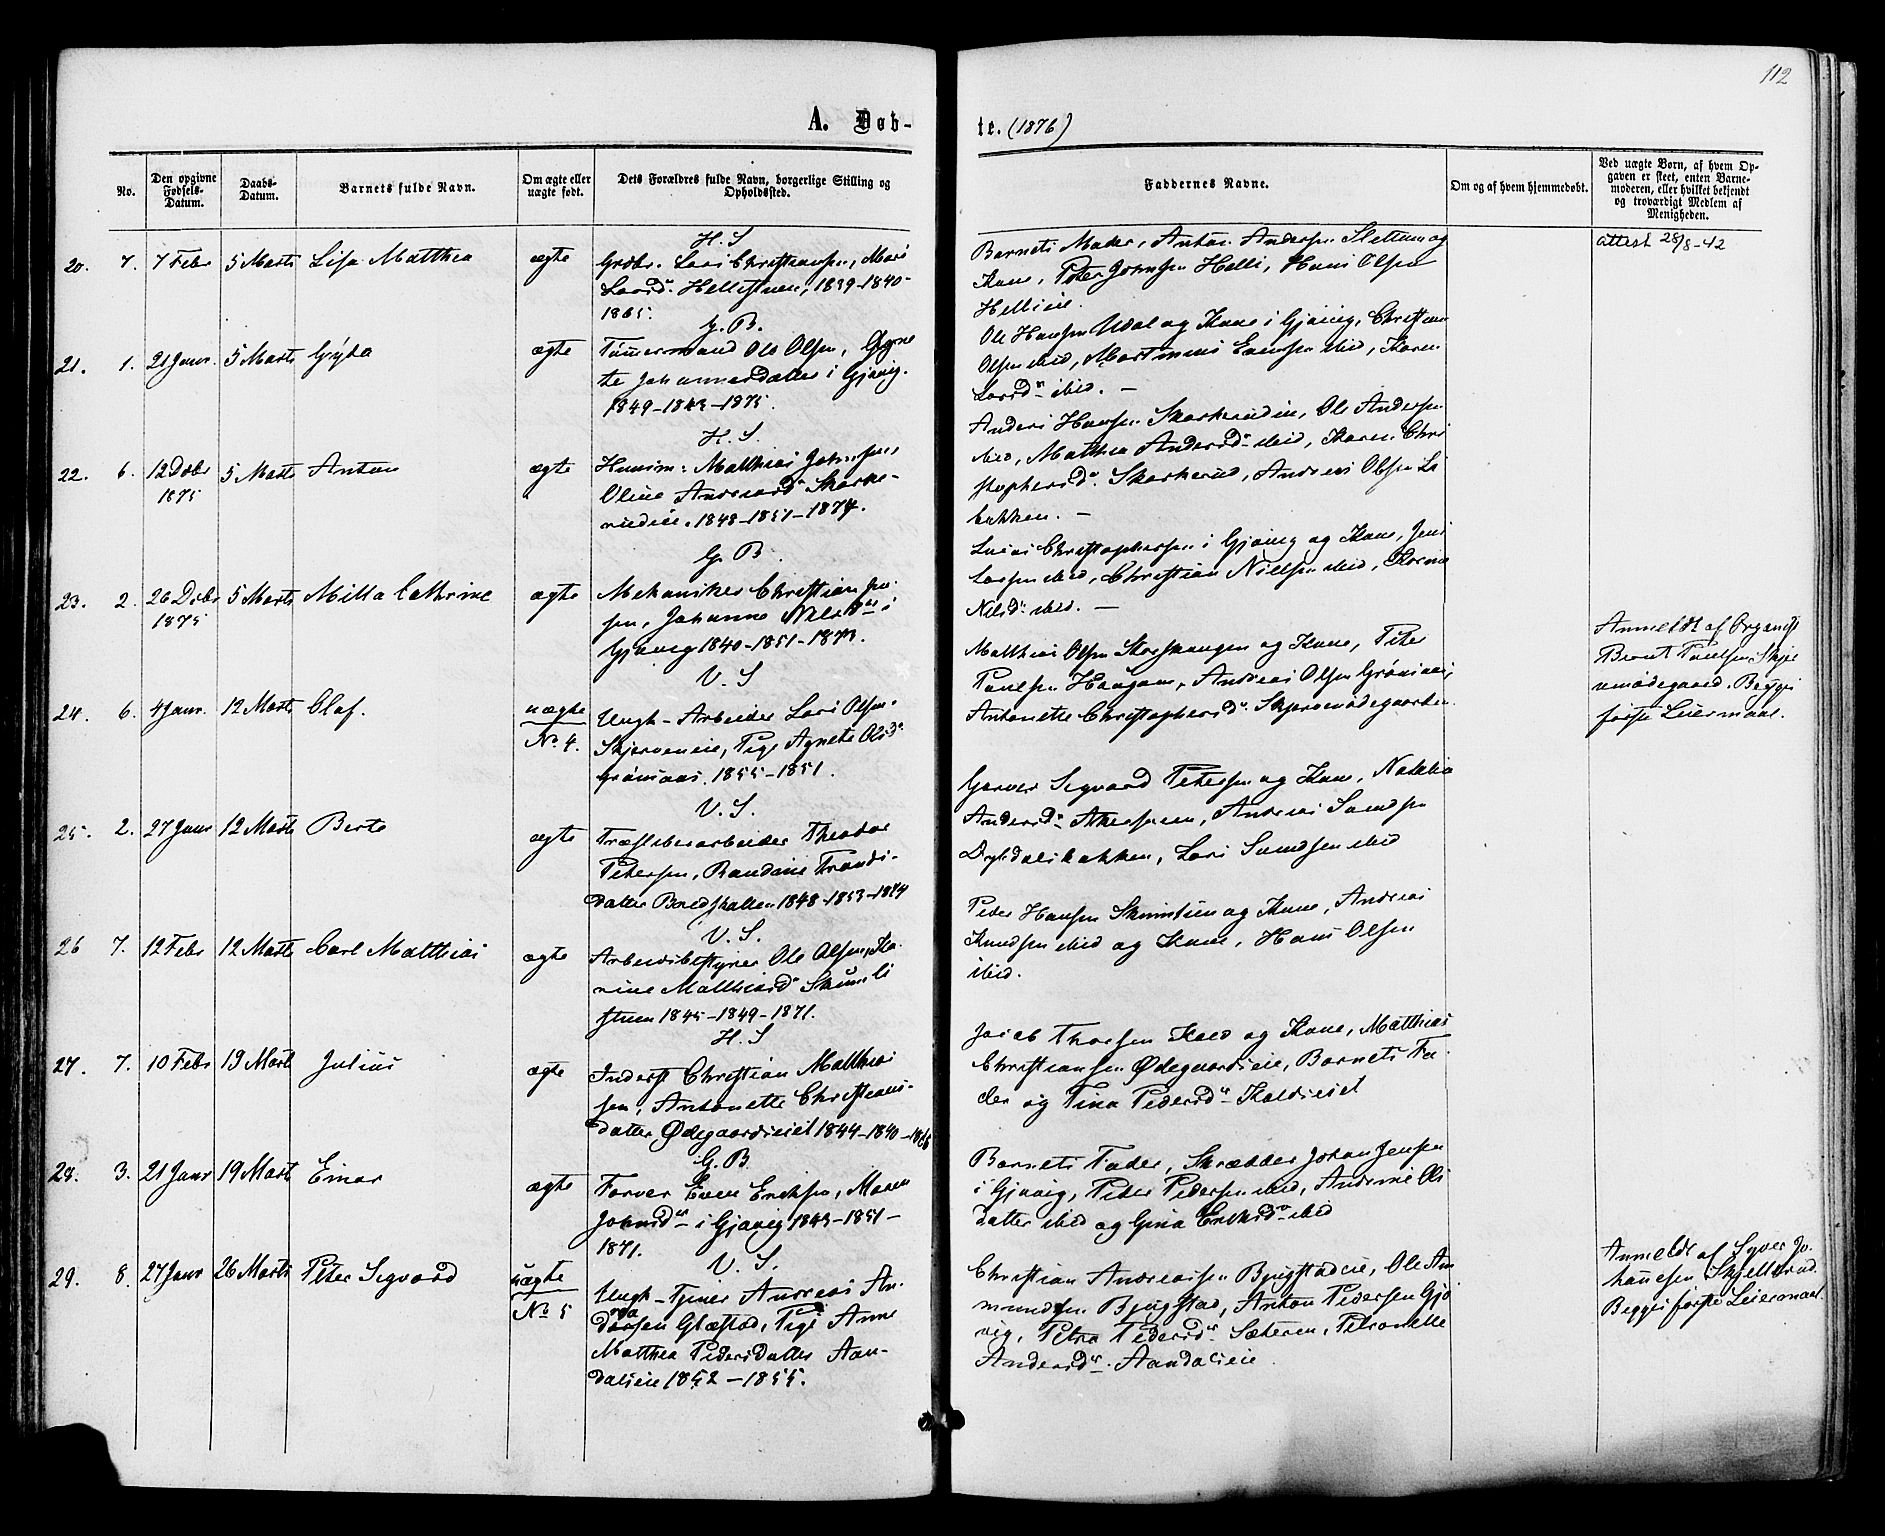 112
A. Døb-
te. (1876)
No.
Den opgivne Fødsels-Datum.
Daabs-Datum.
Barnets fulde Navn.
Om ægte eller uægte født.
Dets Forældres fulde Navn, borgerlige Stilling og Opholdssted.
Faddernes Navne.
Om og af hvem hjemmedøbt.
Ved uægte Børn, af hvem Opgaven er skeet, enten Barnemoderen, eller hvilket bekjendt og troværdigt Medlem af Menigheden.
H. S
20. 7. 7 Febr 5 Marts Lisa Matthea ægte
Grdbr. Lars Christiansen, Mari
Larsd. Hellistuen, 1839-1840-
1865.
Barnets Moder, Anton Andersen Sletten og
Kone, Peter Johnsen Helli, Hans Olsen
Hellieie.
attest 28/8-42
G. B.
21. 1. 21 Janr. 5 Marts Gryda ægte
Tømermand Ole Olsen,
Johannesdatter i Gjøvig.
1849-1843-1875.
Ole Hansen Udal og Kone i Gjøvig, Christian
Olsen ibid, Martinus Evensen ibid, Karen
Larsd. ibid. —
H. S.
22. 6. 12 Decbr 1875 5 Marts Anton ægte
Husm: Matthias Johnsen,
Oline Andersd. Skarke-
rudeie. 1848-1851-1874.
Anders Hansen Skarkerudeie, Ole Andersen
ibid, Matthea Andersd. ibid, Karen Chri
stophersd. Skarkerud, Andreas Olsen Li
bakken. —
G. B.
23. 2. 26 Dcbr 1875 5 Marts Milla Cathrine ægte
Mekaniker Christian Jen-
sen, Johanne Nilsd. i
Gjøvig 1840-1851-1873.
Lucas Christophersen i Gjøvig og Kone, Jens
Larsen ibid, Christian Nilsen ibid, Karine
Nilsd. ibid. —
V. S
24. 6. 4 Janr. 12 Marts Olaf. uægte No. 4.
Ungk- Arbeider Lars Olsen
Skjerveneie, Pige Agnete Olsd.
Grønaas. 1855-1851.
Matthias Olsen Skovhaugen og Kone, Peter
Paulsen Haugom, Andreas Olsen Grønaas,
Antonette Christophersd. Skjervenødegaarden.
Anmeldt af Organist
Bernt Paulsen Skjer
venødegaard. Begges
første Leiermaal.
V. S.
25. 2. 27 Janr 12 Marts Berte ægte
Træsliberarbeider Theodor
Petersen, Randine Frands-
datter 1848-1853-1874
Garver Sigvard Petersen og Kone, Nathalia
Andersd. Andreas Svendsen
Dybdalsbakken, Lars Svendsen ibid
V. S.
26 7. 12 Febr 12 Marts Carl Matthias ægte
Arbeidsbestyrer Ole Olsen, Ka-
rine Mathiasd. Skumli
stuen 1845-1849-1871.
Peder Hansen Skumlien og Kone, Andreas
Knudsen ibid og Kone, Hans Olsen
ibid.
H. S
27. 7. 10 Febr 19 Marts Julius ægte
Inderst Christian Matthias
sen, Antonette Christians-
datter Ødegaardseiet 1844-1840-1868
Jacob Thorsen Kald og Kone, Matthias
Christiansen Ødegaardseie, Barnets Fa-
der og Tina Pedersd. Kaldseiet
G. B
28. 3. 21 Janr 19 Marts Einar ægte
Farver Even Eriksen, Maren
Johnsd. i Gjøvig 1843-1851-
1871.
Barnets Fader, Skrædder Johan Jensen
i Gjøvig, Peter Pedersen ibid, Andrine Ols
datter ibid og Gina Eriksd. ibid
V. S.
29. 8. 27 Janr 26 Marts Peter Sigvard uægte No 5
Ungk- Tjener Andreas An-
dersen Glæstad, Pige Anne
Matthea Pedersdatter Aan-
dalseie 1852-1855.
Christian Andreassen Bjugstadeie, Ole Am
mundsen Bjugstad, Anton Pedersen Gjø
vig, Petra Pedersd. Sæteren, Petronelle
Andersd. Aandalseie.
Anmeldt af Syver Jo-
hannesen Skjellerud.
Begges første Leiermaal.